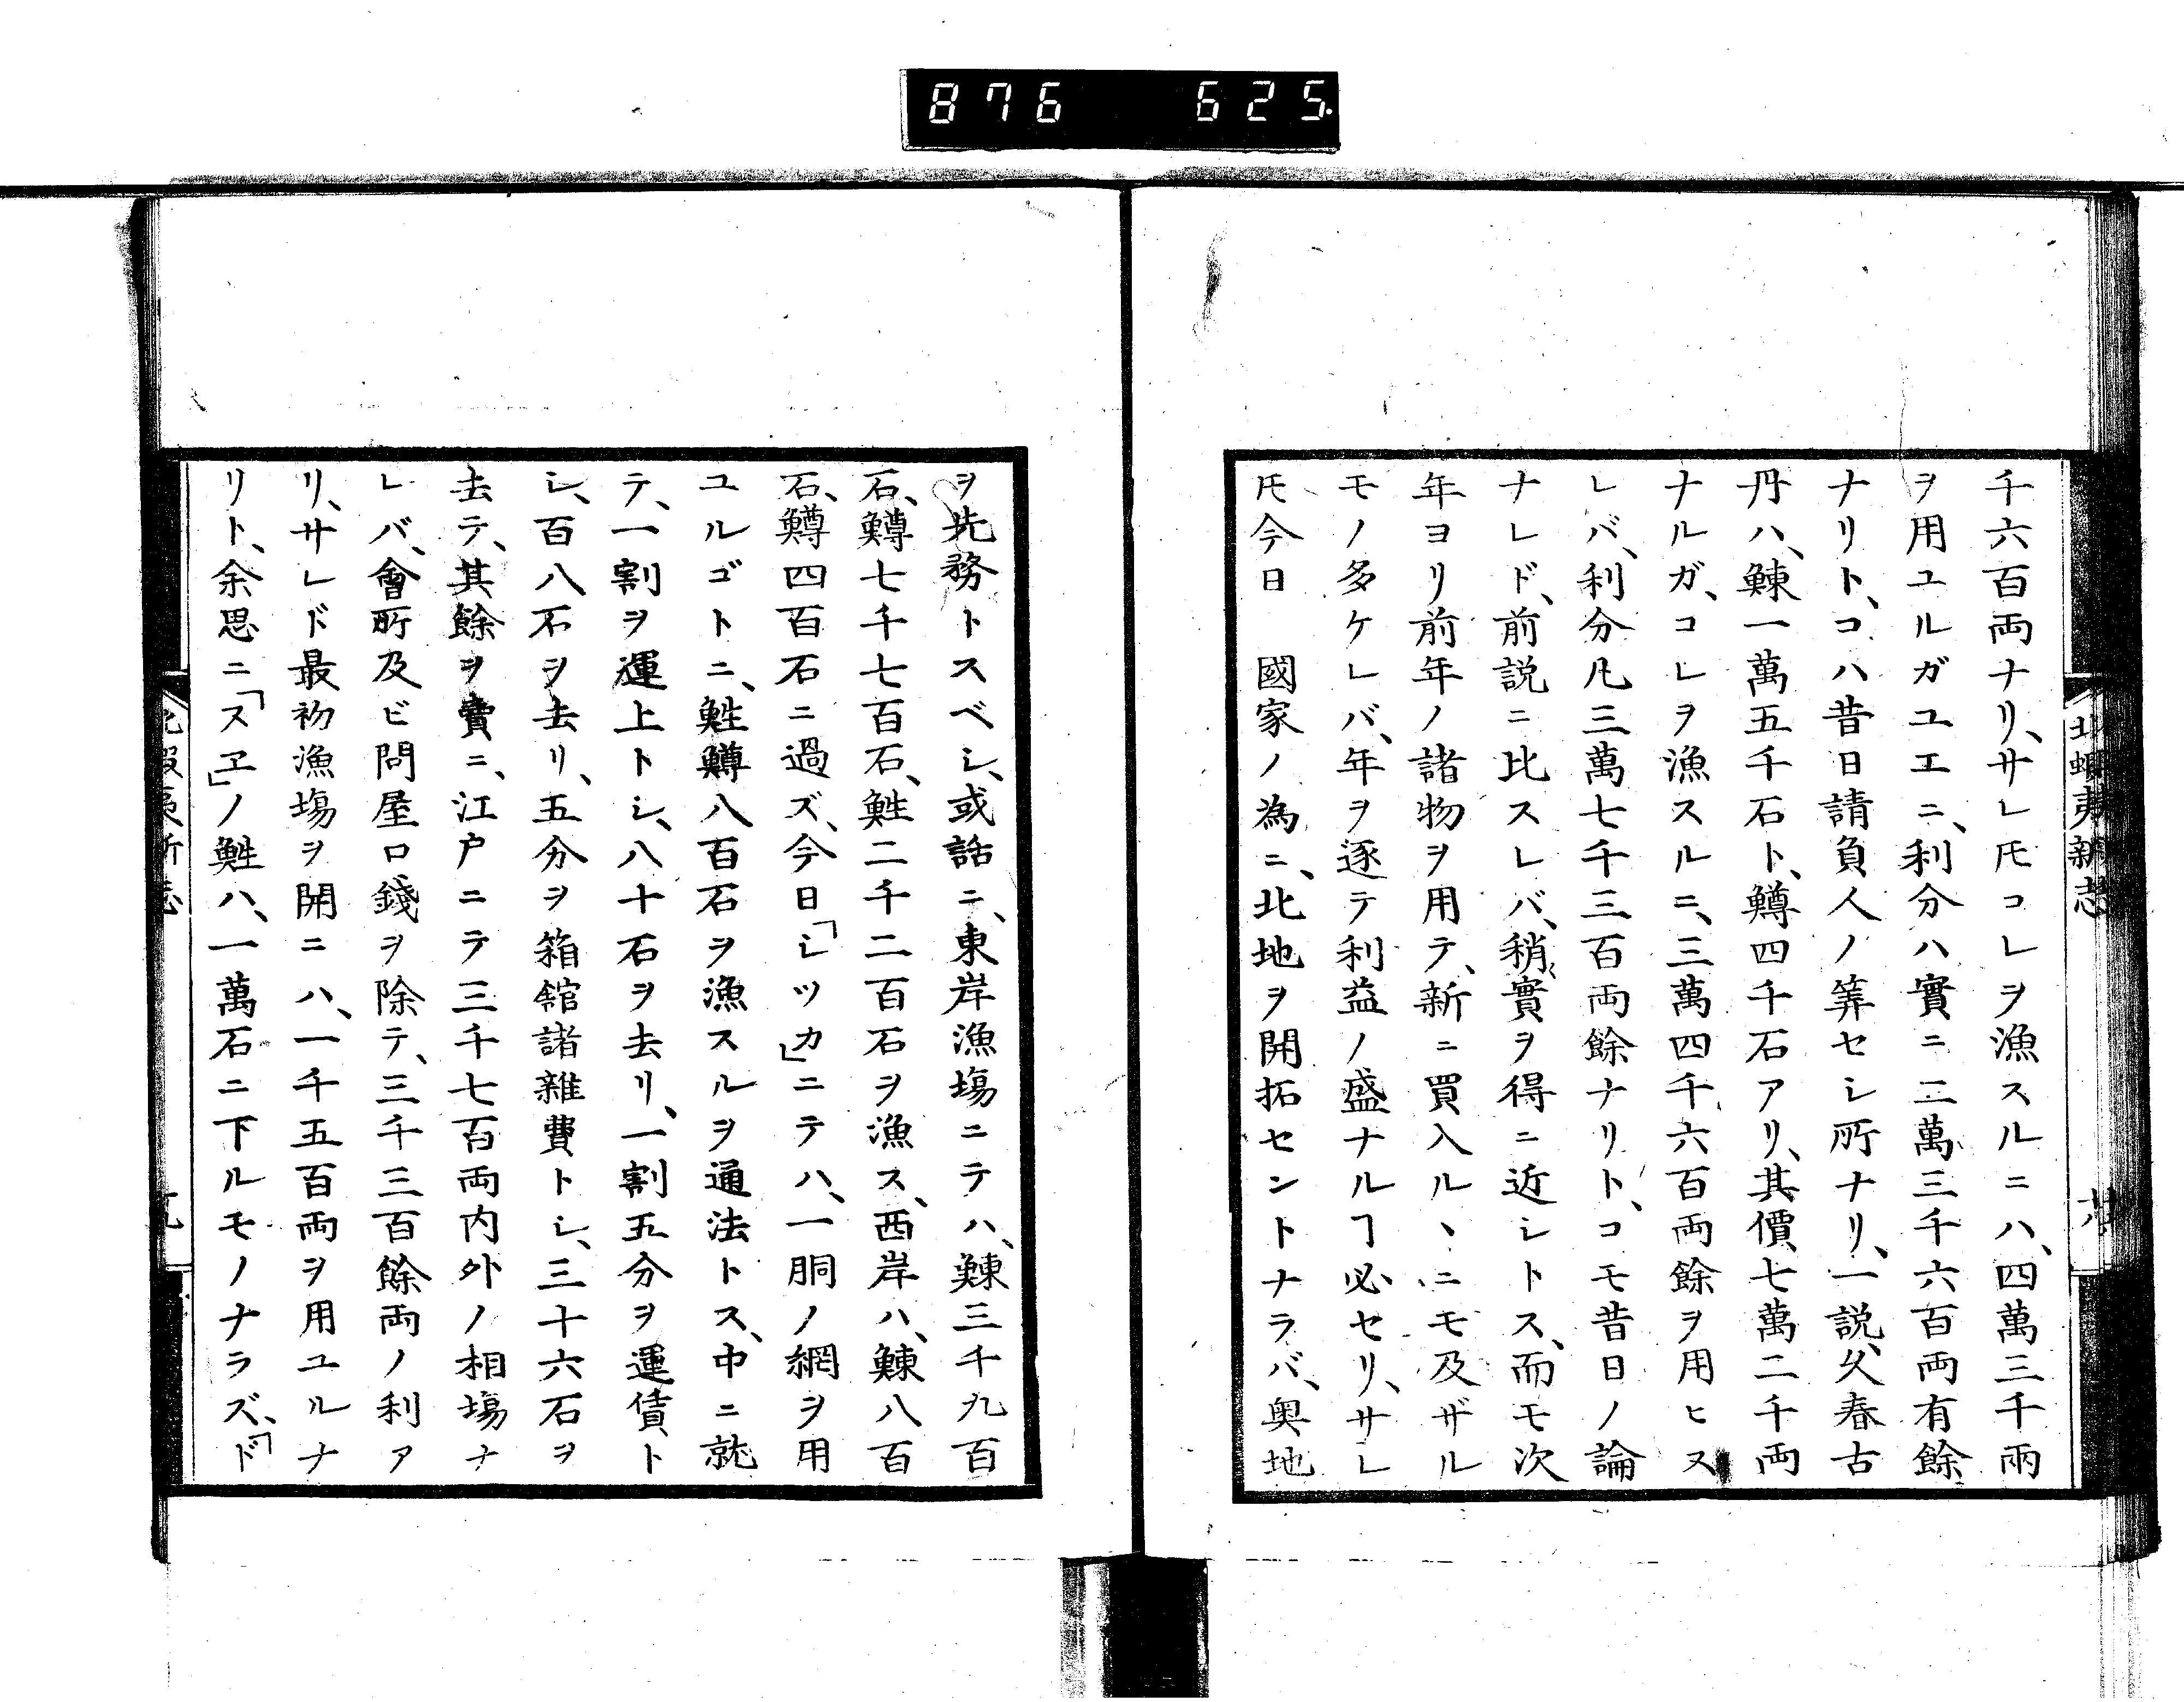 876 625
北蝦夷新志
千六百両ナリ、サレ𪜈コレヲ漁スルニハ、四萬三千兩
ヲ用ユルガユエニ、利分ハ實ニ二萬三千六百両有餘
ナリト、コハ昔日請負人ノ筭セシ所ナリ、一説、久春古
丹ハ、鰊一萬五千石ト、鱒四千石アリ、其價七萬二千両
ナルガ、コレヲ漁スルニ、三萬四千六百両餘ヲ用ヒス
レバ、利分凡三萬七千三百両餘ナリト、コモ昔日ノ論
ナレド、前説ニ比スレバ、稍實ヲ得ニ近シトス、而モ次
年ヨリ前年ノ諸物ヲ用テ、新ニ買入ルヽニモ及ザル
モノ多ケレバ、年ヲ逐テ利益ノ盛ナルヿ必セリ、サレ
𪜈今日 國家ノ為ニ、北地ヲ開拓セントナラバ、奥地
ヲ先務トスベシ、或話ニ、東岸漁塲ニテハ、鰊三千九百
石、鱒七千七百石、鮏二千二百石ヲ漁ス、西岸ハ、鰊八百
石、鱒四百石ニ過ズ、今日「シツカ」ニテハ、一胴ノ網ヲ用
ユルゴトニ、鮏鱒八百石ヲ漁スルヲ通法トス、中ニ就
テ、一割ヲ運上トシ、八十石ヲ去リ、一割五分ヲ運賃ト
シ、百八石ヲ去リ、五分ヲ箱館諸雜費トシ、三十六石ヲ
去テ、其餘ヲ賣ニ、江戸ニテ三千七百両内外ノ相塲ナ
レバ、會所及ビ問屋口錢ヲ除テ、三千三百餘両ノ利ア
リ、サレド最初漁塲ヲ開ニハ、一千五百両ヲ用ユルナ
リト、余思ニ「スヱ」ノ鮏ハ、一萬石ニ下ルモノナラズ、「ド